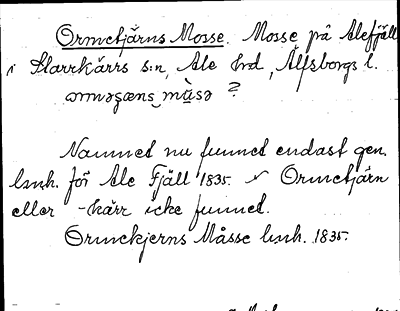 Ormetjärns Mosse. Mosse på Alefjäll
i Starrkärrs s:n, Ale hd, Älfsborgs l.
ɷrməʂæns mùsə ?
Namnet nu funnet endast gen.
lmh. för Ale Fjäll 1835. Ormetjärn
eller -kärr icke funnet.
Ormekjerns Måsse lmh. 1835.